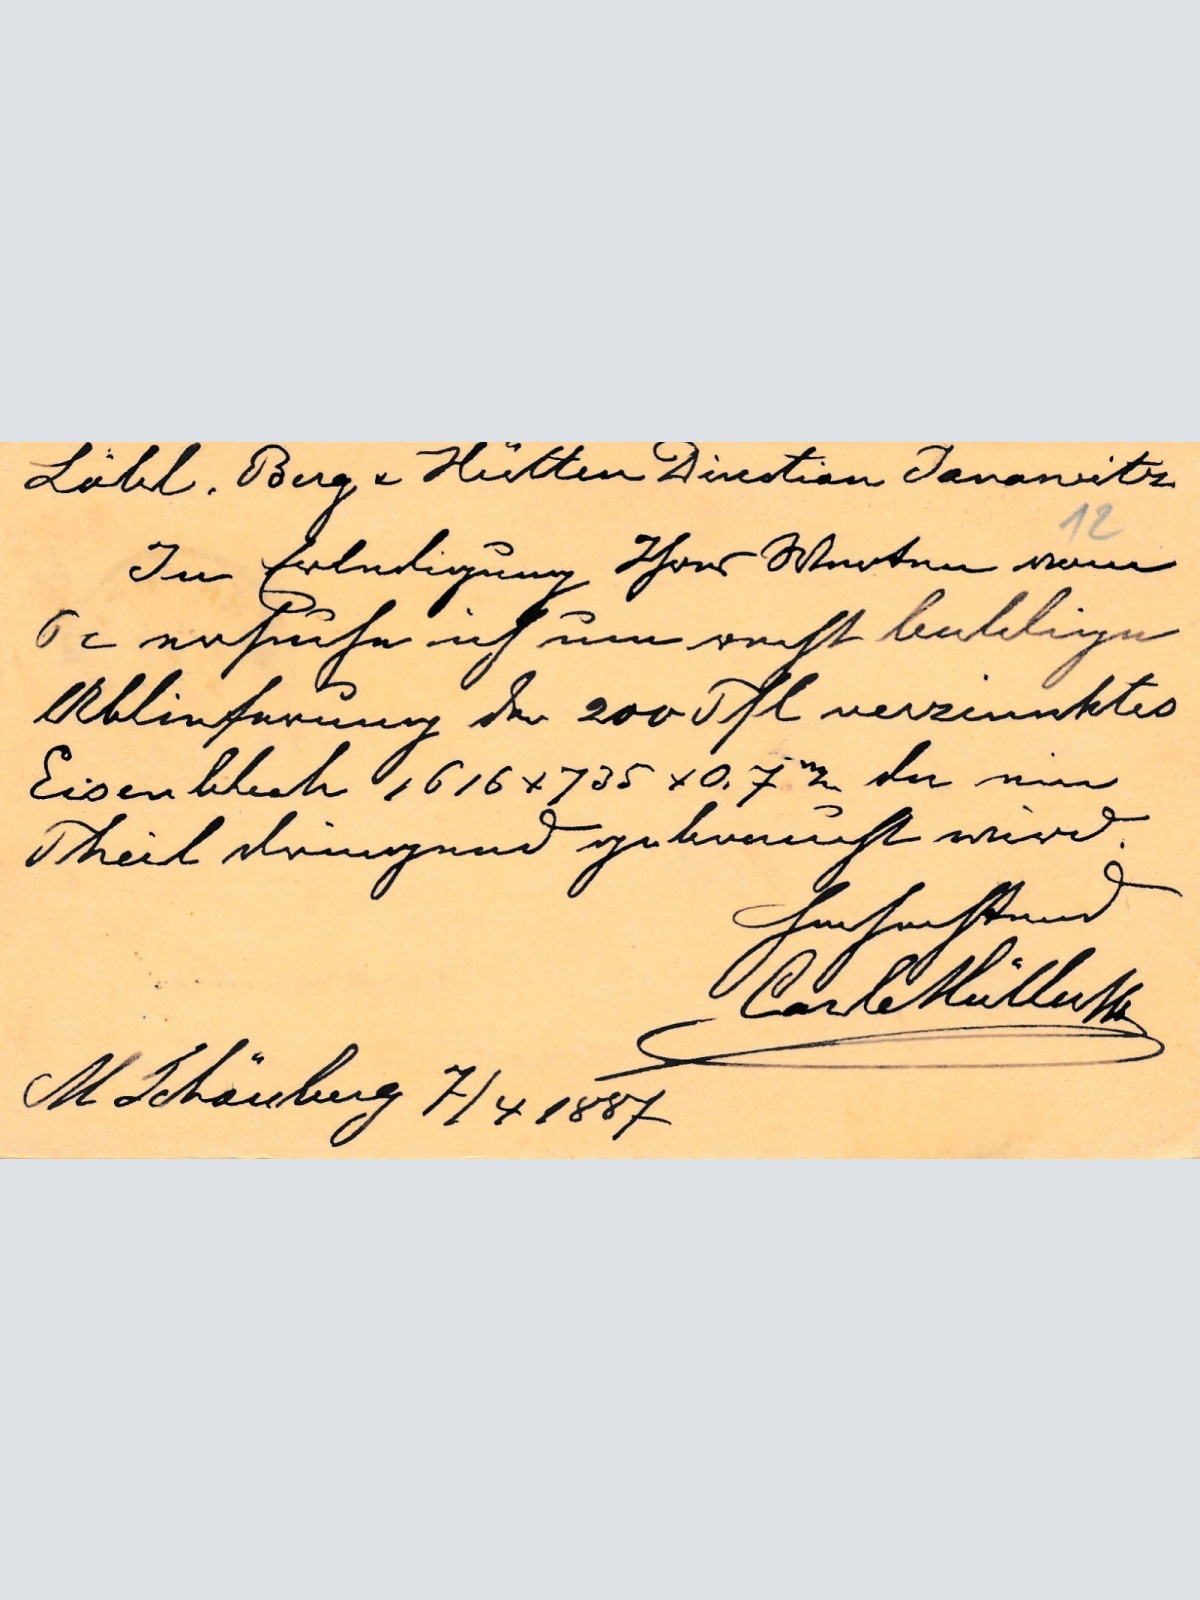 Löbl. Berg & Hütten Direction Janowitz
12
In Erledigung Ihres Werthen vom
6 c ersuche ich um recht baldige
Ablieferung der 200 Tfl verzinktes
Eisenblech 1616 x 735 x 0.7 m/m da ein
Theil dringend gebraucht wird.
Hochachtend
Carl Müller
M Schönberg 7/4 1887